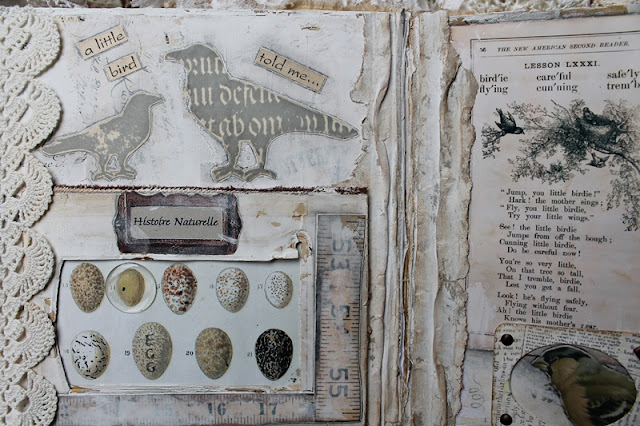 a little
bird
told me...
Histoire Naturelle
EGG
53
54
55
16 17
56 THE NEW AMERICAN SECOND READER.
LESSON LXXXI.
bird'ie care'ful safe'ly
fly'ing cun'ning trem'b
"Jump, you little birdie!"
Hark! the mother sings;
"Fly, you little birdie,
Try your little wings."
See! the little birdie
Jumps from off the bough;
Cunning little birdie,
Do be careful now!
You're so very little,
On that tree so tall,
That I tremble, birdie,
Lest you get a fall.
Look! he's flying safely,
Flying without fear.
Ah! the little birdie
Knows his mother's